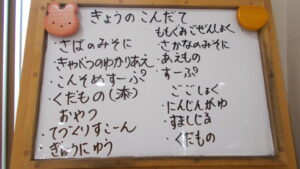 きょうのこんだて
・さばのみそに
・きゃべつのわかりあえ
・こんそめすーぷ
・くだもの(杏)
おやつ
・てづくりすこーん
・ぎゅうにゅう
ももぐみごぜんしょく
・さかなのみそに
・あえもの
・すーぷ
ごごしょく
・にんじんがゆ
・すましじる
・くだもの